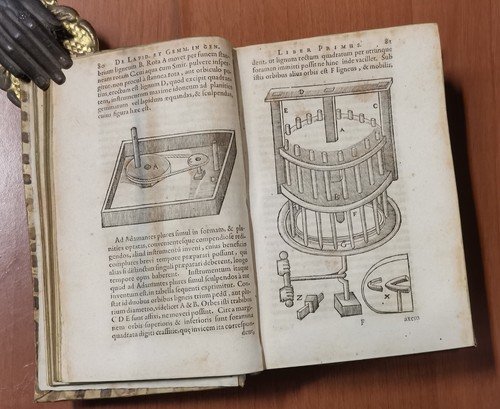 80 DE LAPID. ET GEMM. IN GEN.
brium ligneum B. Rota A movet per funem stan-
neum rotum C cui aqua cum Smir. pulvere insper-
gitur. non procul à stannea rota, aut orbiculo po-
situs, erectum est lignum D, quod excipit quadra
tem, instrumentum maximè idoneum ad planities
gemmarum vel lapidum æquandas, & sculpendas,
cuius figura hæc est.
A
Ad Adamantes plures simul in formato, & pla-
nities optatas, convenientesque compendiosè redi-
gendos, aliud instrumentũ inveni, cuius beneficio
complures brevi tempore præparari possunt, qui
alias si distinctim singuli præparari deberent, longo
tempore opus haberent. Instrumentum itaque
quod ad Adamantes plures simul sculpendos à me
inventum est, in tabella sequenti exprimitur. Con-
stat id duobus orbibus ligneis trium pedũ, aut plu-
rium diametro, videlicet A & B. Orbes illi trabibus
C D E sunt affixi, ne moveri possint. Circa margi-
nem orbis superioris & inferioris sunt foramina
quadrata digiti crassitie, quæ invicem ita correspon-
deant,
LIBER PRIMUS. 81
deant, ut lignum rectum quadratum per utrunque
foramen immitti possit ne hinc inde vacillet. Sub
istis orbibus alius orbis est F ligneus, & mobilis,
D
E C
A
B
F
G
Z
X
F axem